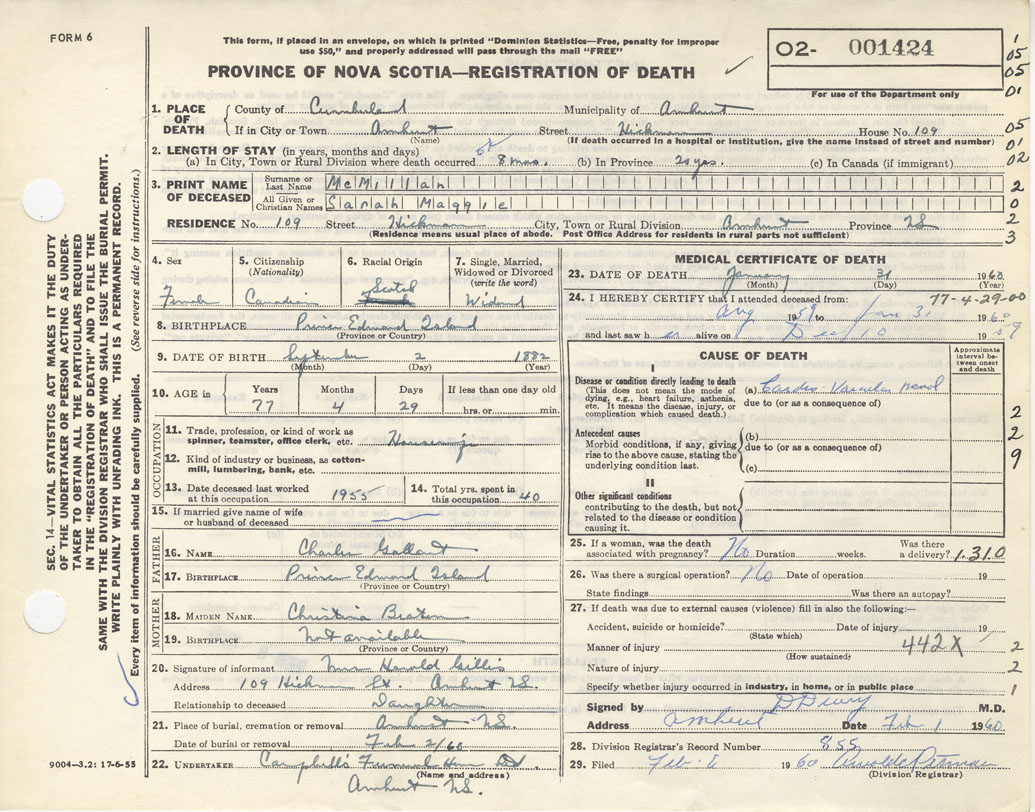 FORM 6
This form, if placed in an envelope, on which is printed "Dominion Statistics—Free, penalty for improper
use $50," and properly addressed will pass through the mail "FREE"
PROVINCE OF NOVA SCOTIA—REGISTRATION OF DEATH
02- 001424
For use of the Department only
1 05 05 01 05 01 02 2 0 2 3
1. PLACE OF DEATH County of Cumberland Municipality of Amherst
If in City or Town Amherst Street Hickman House No. 109
(Name) (If death occurred in a hospital or institution, give the name instead of street and number)
2. LENGTH OF STAY (in years, months and days)
(a) In City, Town or Rural Division where death occurred 8 mos. (b) In Province 20 yrs. (c) In Canada (if immigrant)
3. PRINT NAME OF DECEASED Surname or Last Name McMillan
All Given or Christian Names Sarah Maggie
RESIDENCE No. 109 Street Hickman City, Town or Rural Division Amherst Province NS
(Residence means usual place of abode. Post Office Address for residents in rural parts not sufficient)
4. Sex Female
5. Citizenship (Nationality) Canadian
6. Racial Origin Scotch
7. Single, Married, Widowed or Divorced (write the word) Widowed
8. BIRTHPLACE Prince Edward Island
(Province or Country)
9. DATE OF BIRTH September 2 1882
(Month) (Day) (Year)
10. AGE in Years 77 Months 4 Days 29 If less than one day old hrs. or min.
OCCUPATION
11. Trade, profession, or kind of work as spinner, teamster, office clerk, etc. Housewife
12. Kind of industry or business, as cotton-mill, lumbering, bank, etc.
13. Date deceased last worked at this occupation 1955
14. Total yrs. spent in this occupation 40
15. If married give name of wife or husband of deceased
FATHER
16. NAME Charles Gallant
17. BIRTHPLACE Prince Edward Island
MOTHER
18. MAIDEN NAME Christina Beaton
19. BIRTHPLACE not available
(Province or Country)
20. Signature of informant Mrs Harold Gillis
Address 109 Hickman St. Amherst NS.
Relationship to deceased Daughter
21. Place of burial, cremation or removal Amherst NS.
Date of burial or removal Feb 2/60
22. UNDERTAKER Campbell's Funeral Home
(Name and address)
Amherst NS.
MEDICAL CERTIFICATE OF DEATH
23. DATE OF DEATH January 31 1960
(Month) (Day)
77-4-29-00
24. I HEREBY CERTIFY that I attended deceased from:
Aug 1959 to Jan 31 1960
and last saw h er alive on Dec 10 1959
CAUSE OF DEATH
Approximate interval between onset and death
I
Disease or condition directly leading to death
(This does not mean the mode of dying, e.g., heart failure, asthenia, etc. It means the disease, injury, or complication which caused death.)
(a) Cardio Vascular renal
due to (or as a consequence of)
Antecedent causes
Morbid conditions, if any, giving rise to the above cause, stating the underlying condition last.
(b)
due to (or as a consequence of)
(c)
II
Other significant conditions
contributing to the death, but not related to the disease or condition causing it.
2
2
9
25. If a woman, was the death associated with pregnancy? No Duration weeks. Was there a delivery? 1.310
26. Was there a surgical operation? No Date of operation 19
State findings Was there an autopsy?
27. If death was due to external causes (violence) fill in also the following:—
Accident, suicide or homicide? Date of injury 19
(State which)
Manner of injury 442X 2
(How sustained)
Nature of injury 2
Specify whether injury occurred in industry, in home, or in public place 1
Signed by M.D.
Address Amherst Date Feb 1 1960
28. Division Registrar's Record Number 855
29. Filed Feb. 1 1960
(Division Registrar)
SEC. 14—VITAL STATISTICS ACT MAKES IT THE DUTY
OF THE UNDERTAKER OR PERSON ACTING AS UNDER-
TAKER TO OBTAIN ALL THE PARTICULARS REQUIRED
IN THE "REGISTRATION OF DEATH" AND TO FILE THE
SAME WITH THE DIVISION REGISTRAR WHO SHALL ISSUE THE BURIAL PERMIT.
WRITE PLAINLY WITH UNFADING INK. THIS IS A PERMANENT RECORD.
Every item of information should be carefully supplied. (See reverse side for instructions.)
9004—3.2: 17-6-55